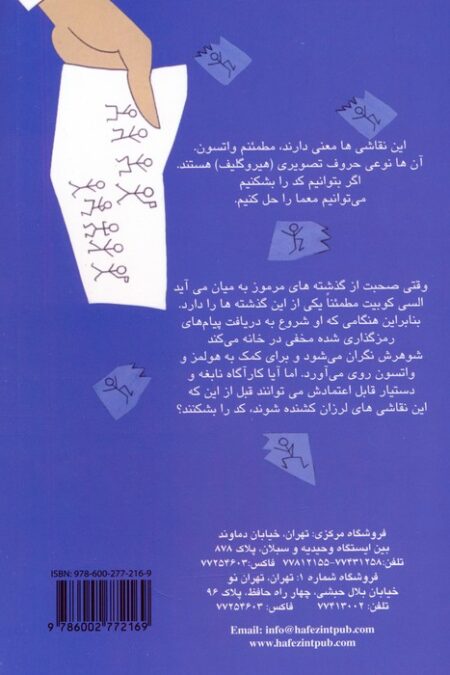 این نقاشی ها معنی دارند، مطمئنم واتسون.
آن ها نوعی حروف تصویری (هیروگلیف) هستند.
اگر بتوانیم کد را بشکنیم
می‌توانیم معما را حل کنیم.
وقتی صحبت از گذشته های مرموز به میان می آید
السی کوبیت مطمئناً یکی از این گذشته ها را دارد.
بنابراین هنگامی که او شروع به دریافت پیام‌های
رمزگذاری شده مخفی در خانه می‌کند
شوهرش نگران می‌شود و برای کمک به هولمز و
واتسون روی می‌آورد. اما آیا کارآگاه نابغه و
دستیار قابل اعتمادش می توانند قبل از این که
این نقاشی های لرزان کشنده شوند، کد را بشکنند؟
فروشگاه مرکزی: تهران، خیابان دماوند
بین ایستگاه وحیدیه و سبلان، پلاک ۸۷۸
تلفن: ۷۷۴۳۱۲۵۸-۷۷۸۱۲۱۵۵ فاکس: ۷۷۲۵۴۶۰۳
فروشگاه شماره ۱: تهران، تهران نو
خیابان بلال حبشی، چهار راه حافظ، پلاک ۹۶
تلفن: ۷۷۴۱۳۰۰۲ فاکس: ۷۷۲۵۴۶۰۳
Email: info@hafezintpub.com
www.hafezintpub.com
ISBN: 978-600-277-216-9
9 786002 772169